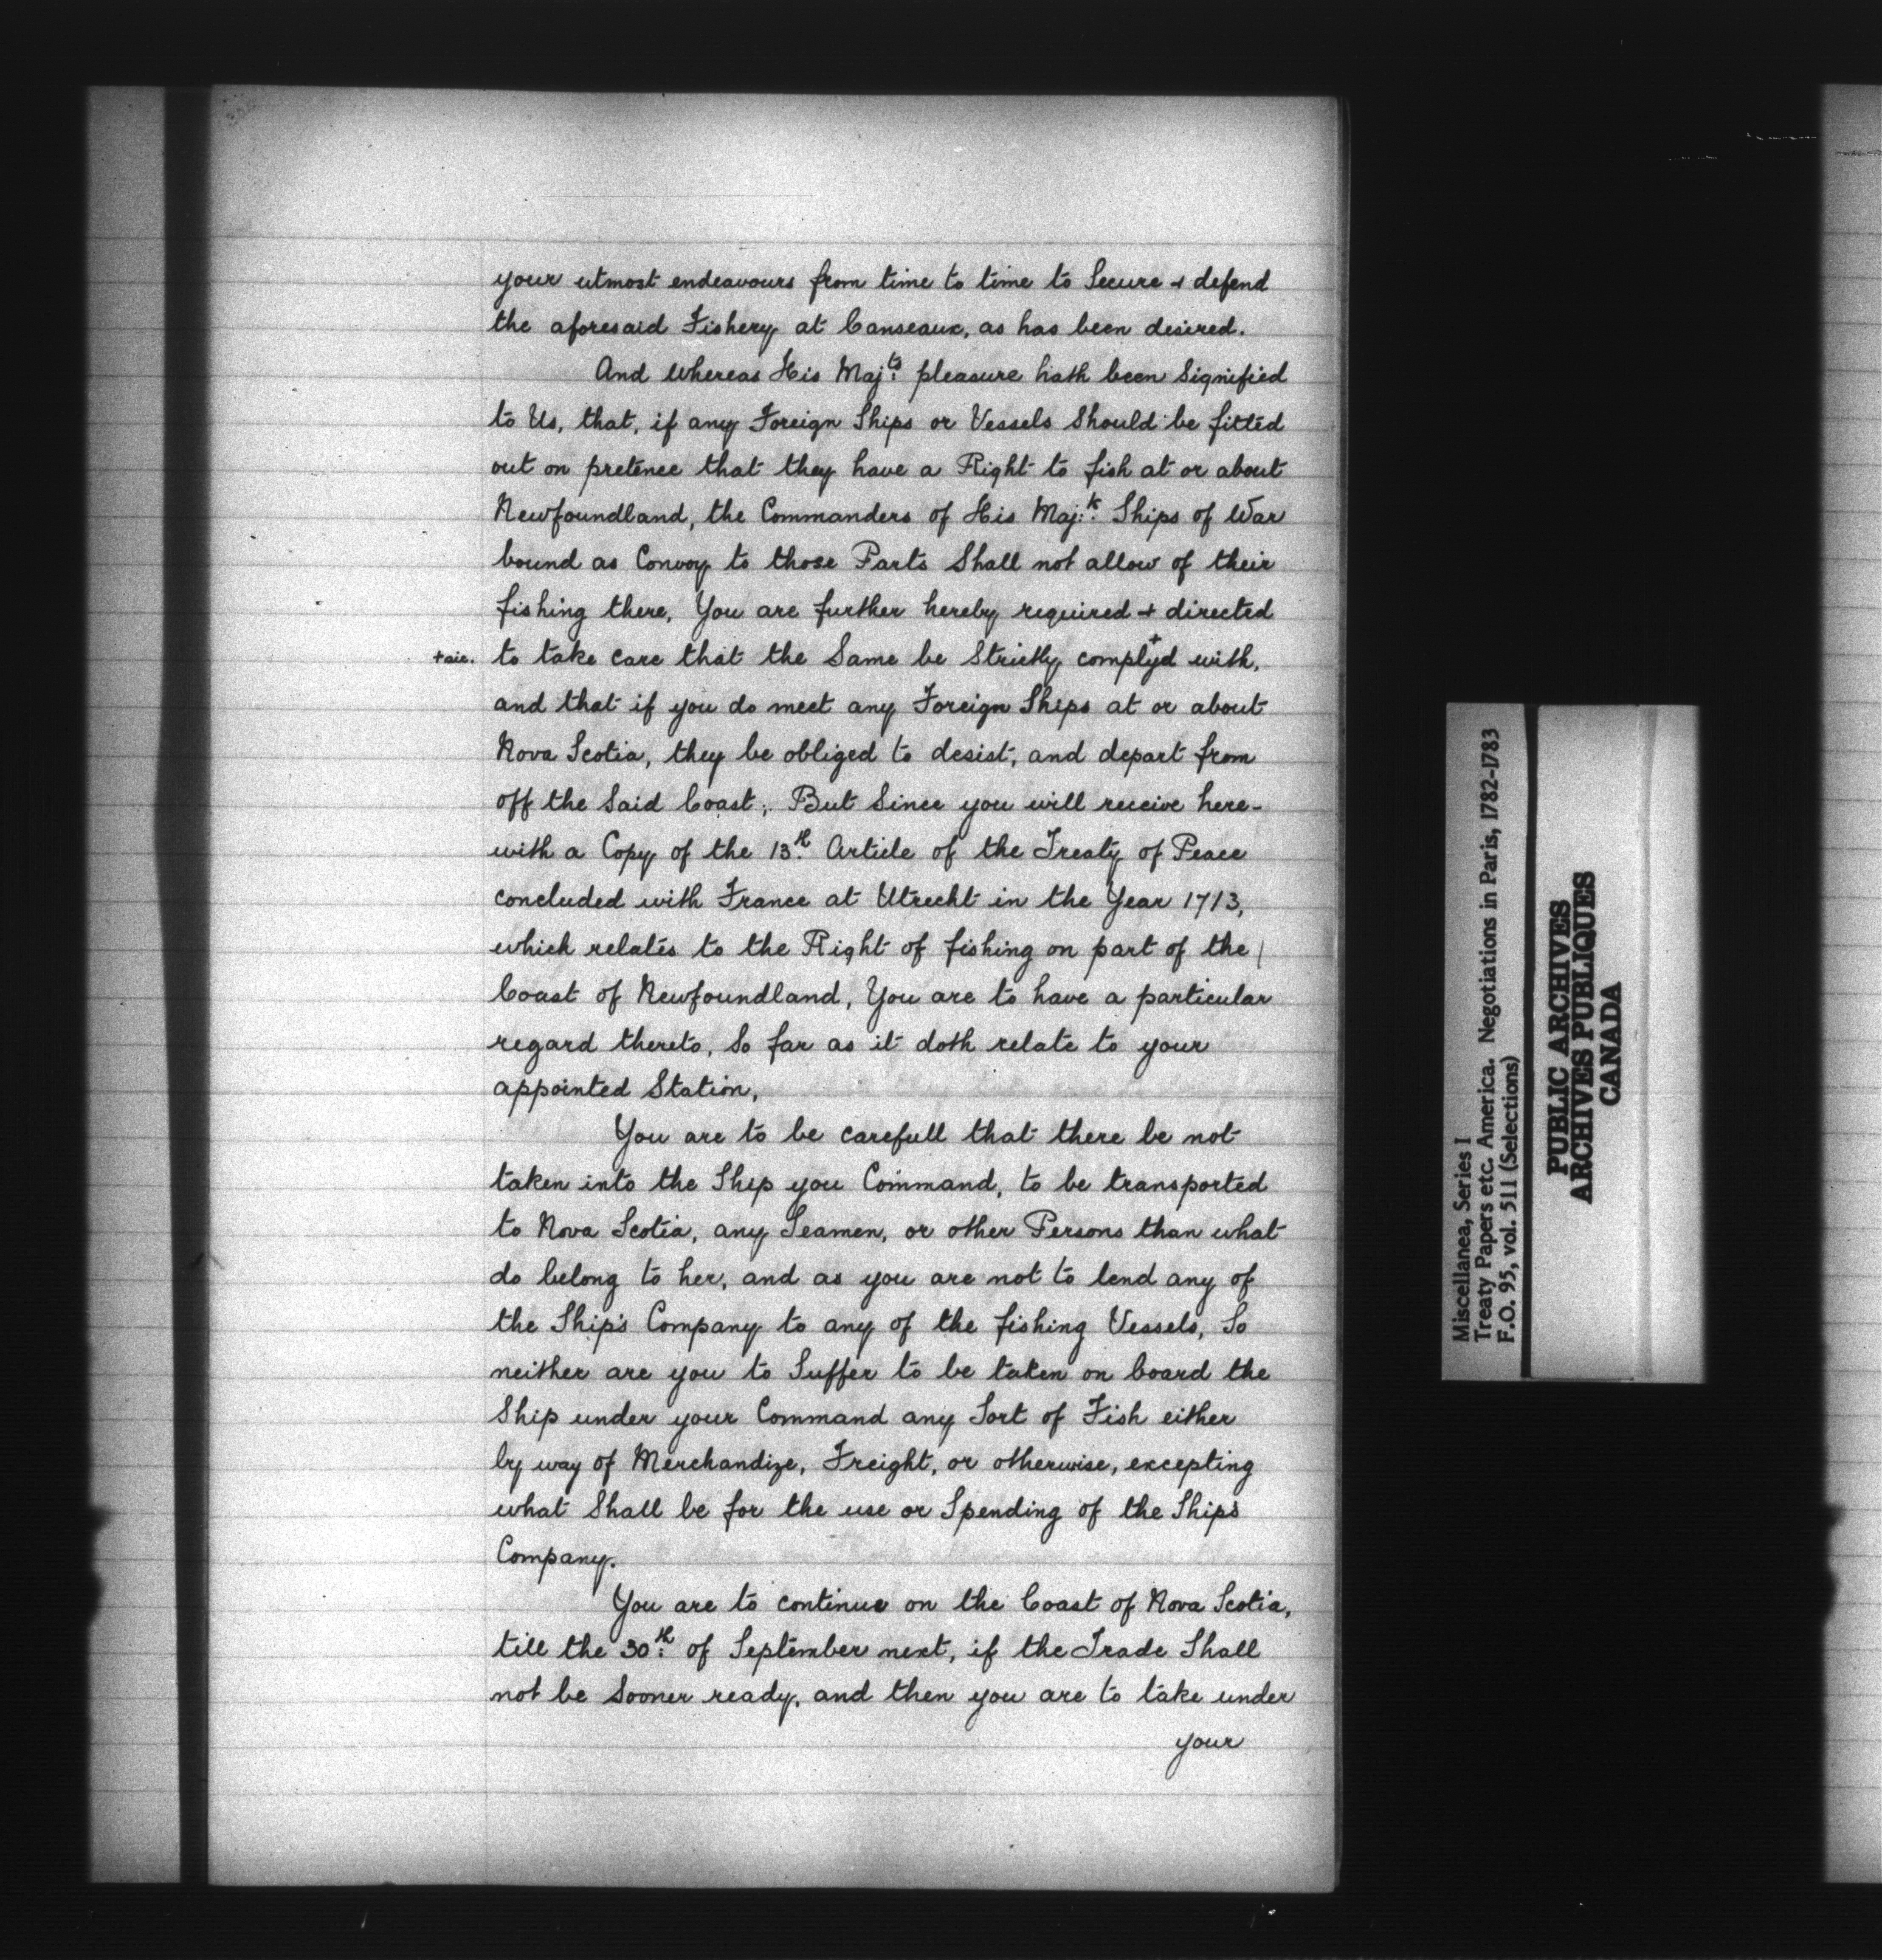 your utmost endeavours from time to time to Secure + defend
the aforesaid Fishery at Canseaux, as has been desired.
And whereas His Maj:ts pleasure hath been Signified
to Us, that, if any Foreign Ships or Vessels Should be fitted
out on pretence that they have a Right to fish at or about
Newfoundland, the Commanders of His Maj:ts Ships of War
bound as Convoy to those Parts Shall not allow of their
fishing there, You are further hereby required + directed
+ sic. to take care that the Same be Strictly complyd + with,
and that if you do meet any Foreign Ships at or about
Nova Scotia, they be obliged to desist, and depart from
off the Said Coast; But Since you will receive here-
with a Copy of the 13th Article of the Treaty of Peace
concluded with France at Utrecht in the Year 1713,
which relates to the Right of fishing on part of the
Coast of Newfoundland, You are to have a particular
regard thereto, So far as it doth relate to your
appointed Station,
You are to be carefull that there be not
taken into the Ship you Command, to be transported
to Nova Scotia, any Seamen, or other Persons than what
do belong to her, and as you are not to lend any of
the Ship's Company to any of the fishing Vessels, So
neither are you to Suffer to be taken on board the
Ship under your Command any Sort of Fish either
by way of Merchandize, Freight, or otherwise, excepting
what Shall be for the use or Spending of the Ship's
Company.
You are to continue on the Coast of Nova Scotia,
till the 30th of September next, if the Trade Shall
not be Sooner ready, and then you are to take under
your
Miscellanea, Series I
Treaty Papers etc. America. Negotiations in Paris, 1782-1783
F.O. 95, vol. 511 (Selections)
PUBLIC ARCHIVES
ARCHIVES PUBLIQUES
CANADA